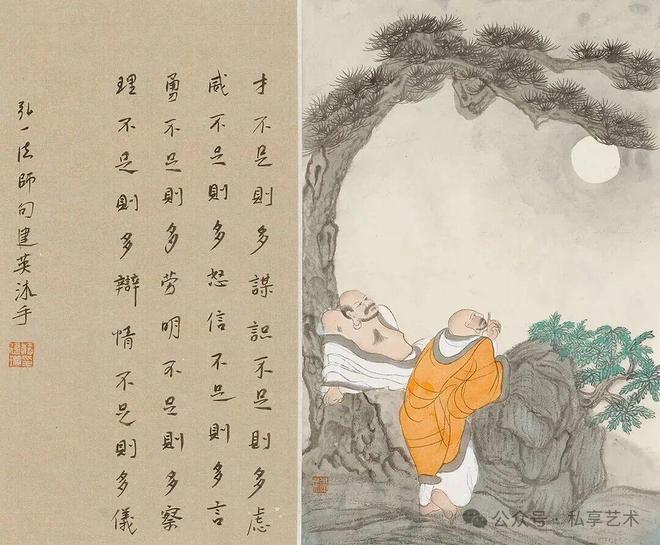 才不足則多謀識不足則多慮
威不足則多怒信不足則多言
勇不足則多勞明不足則多察
理不足則多辯情不足則多儀
弘一法師句建英沐手
公众号·私享艺术